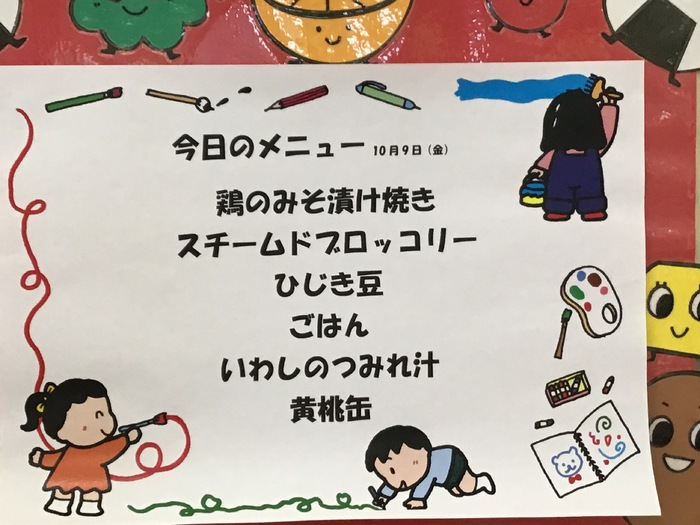 今日のメニュー 10月9日(金)
鶏のみそ漬け焼き
スチームドブロッコリー
ひじき豆
ごはん
いわしのつみれ汁
黄桃缶